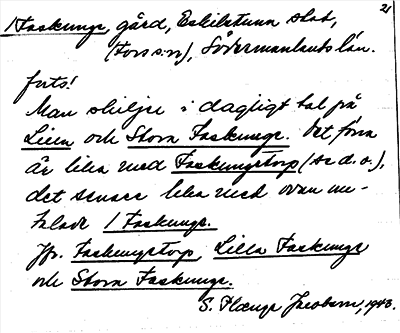 21
1 Faskunge, gård, Eskilstuna stad,
(Fors s:n), Södermanlands län.
forts!
Man skiljer i dagligt tal på
Lilla och Stora Faskunge. Det förra
är lika med Faskungetorp (se d. o.),
det senare lika med ovan an-
förda 1 Faskunge.
Jfr. Faskungetorp, Lilla Faskunge
och Stora Faskunge.
S. Jacobson, 1943.